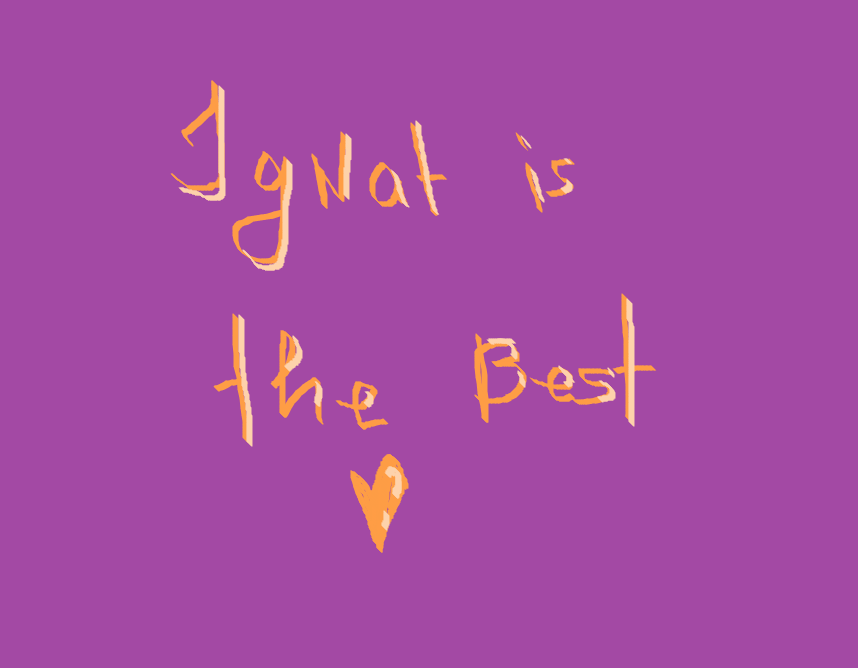 Ignat is
the Best